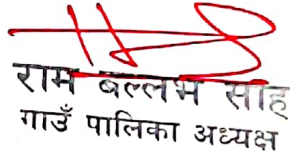 राम बल्लभ साह
गाउँ पालिका अध्यक्ष